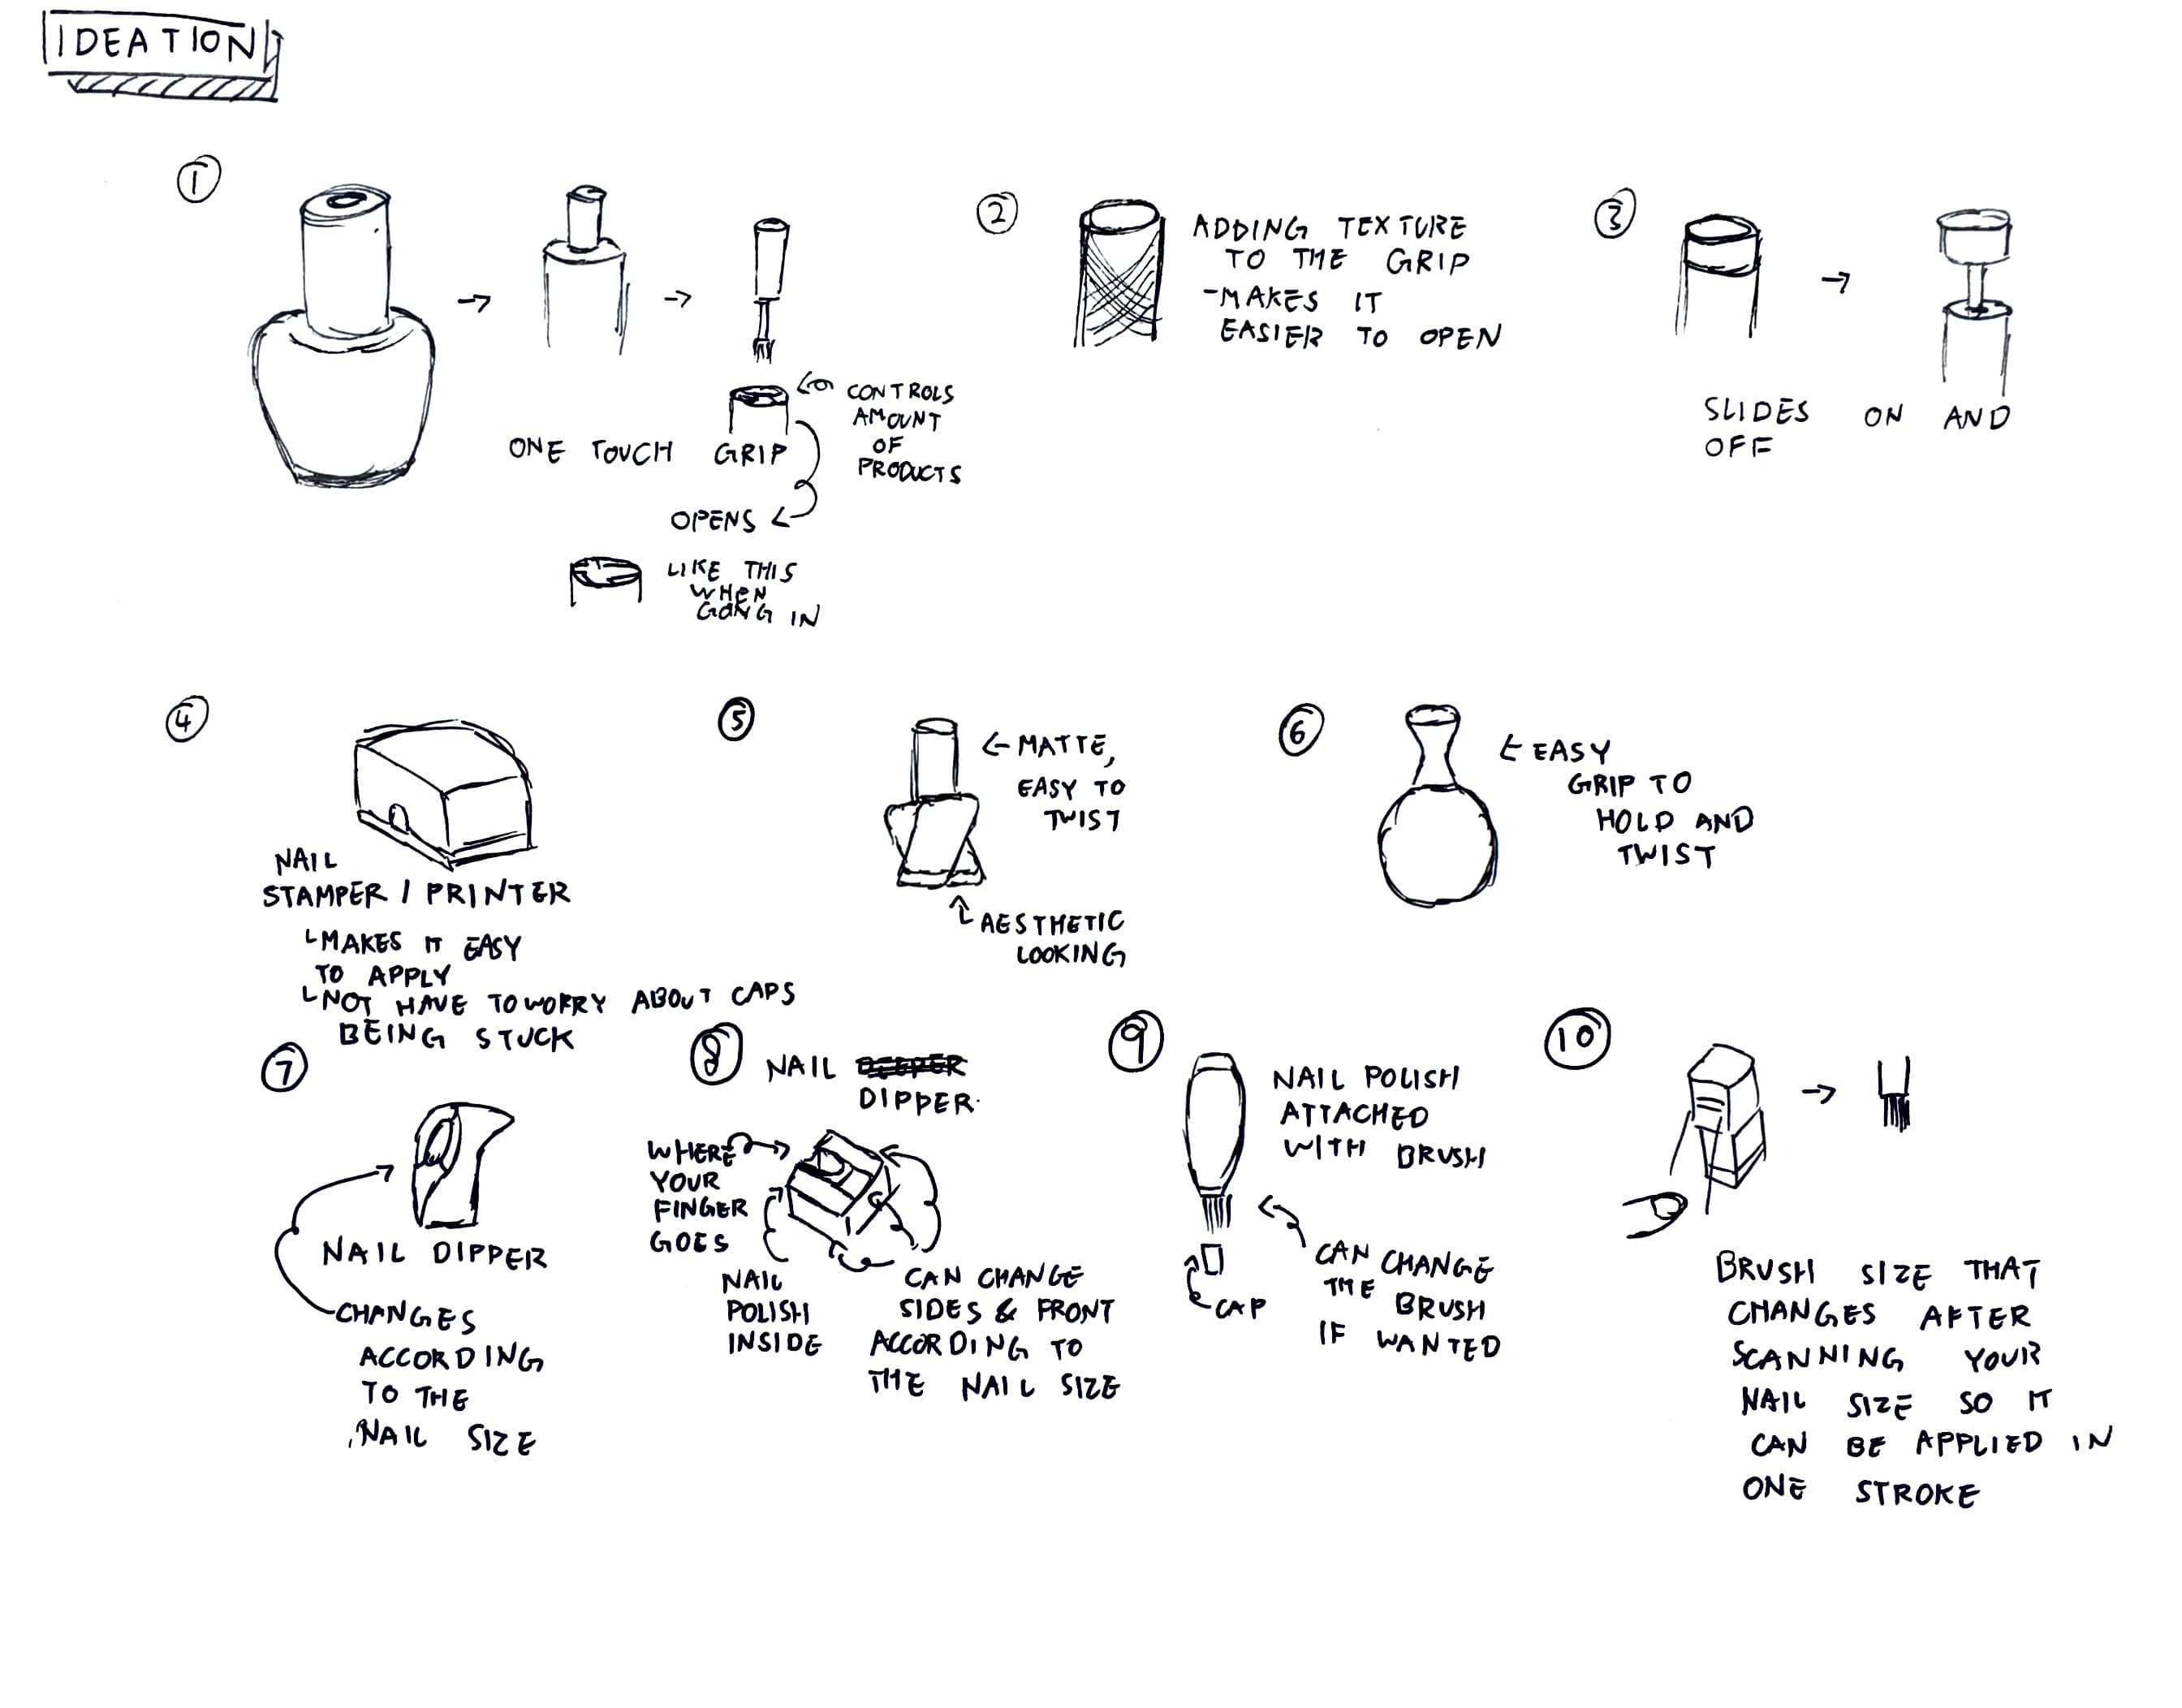 IDEATION
1
ONE TOUCH GRIP
CONTROLS
AMOUNT
OF
PRODUCTS
OPENS
LIKE THIS
WHEN
GOING IN
2
ADDING TEXTURE
TO THE GRIP
-MAKES IT
EASIER TO OPEN
3
SLIDES ON AND
OFF
4
NAIL
STAMPER / PRINTER
MAKES IT EASY
TO APPLY
NOT HAVE TO WORRY ABOUT CAPS
BEING STUCK
5
MATTE,
EASY TO
TWIST
AESTHETIC
LOOKING
6
EASY
GRIP TO
HOLD AND
TWIST
7
NAIL DIPPER
CHANGES
ACCORDING
TO THE
NAIL SIZE
8
NAIL
DIPPER
WHERE
YOUR
FINGER
GOES
NAIL
POLISH
INSIDE
CAN CHANGE
SIDES & FRONT
ACCORDING TO
THE NAIL SIZE
9
NAIL POLISH
ATTACHED
WITH BRUSH
CAP
CAN CHANGE
THE BRUSH
IF WANTED
10
BRUSH SIZE THAT
CHANGES AFTER
SCANNING YOUR
NAIL SIZE SO IT
CAN BE APPLIED IN
ONE STROKE